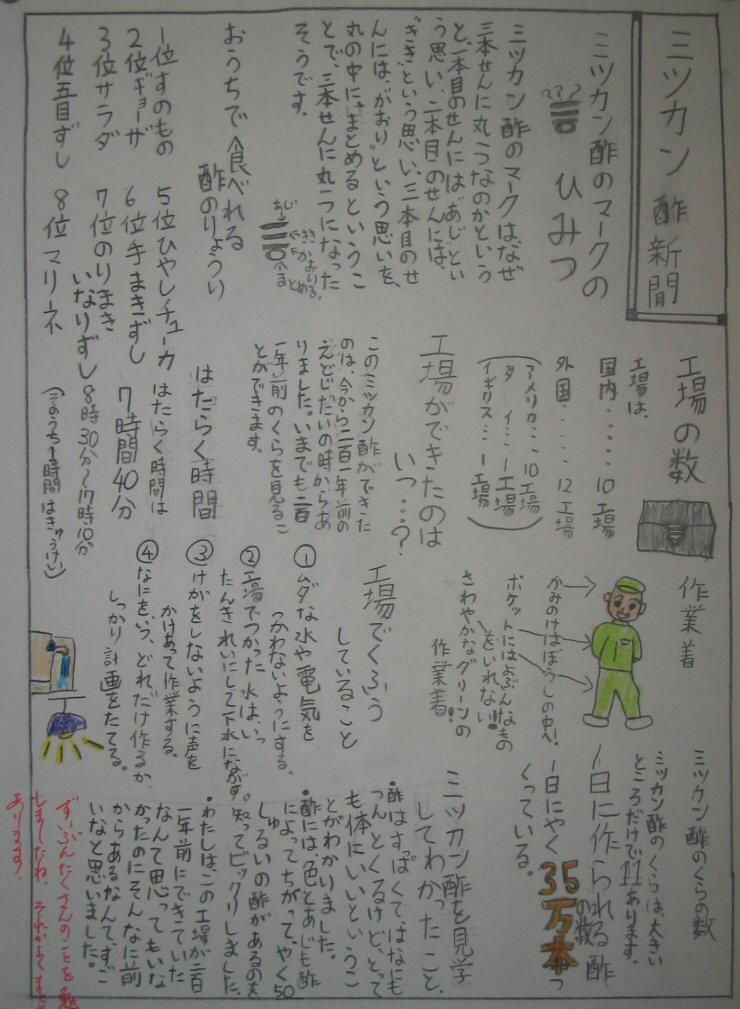 ミツカン酢新聞
ミツカン酢のマークの
ひみつ
???
ミツカン酢のマークは、なぜ
三本せんに丸1つなのかという
と、一本目のせんには、"あじ"とい
う思い、二本目のせんには、
"きき"という思い、三本目のせ
んには、"かおり"という思いを、
丸の中に、まとめるというこ
とで、三本せんに丸一つになった
そうです。
あじ
きき
かおり
まとめる。
おうちで食べれる
酢のりょうり
1位すのもの
2位ギョーザ
3位サラダ
4位五目ずし
5位ひやしチューカ
6位手まきずし
7位のりまき
いなりずし
8位マリネ
工場の数
工場は、
国内・・・・・10工場
外国・・・・・12工場
(アメリカ・・・10工場
タイ・・・1工場
イギリス・・・1工場)
工場ができたのは
いつ…?
このミツカン酢ができた
のは、今から二百一年前の
えどじだいの時からあ
りました。いまでも二百
一年前のくらを見るこ
とができます。
はたらく時間
はたらく時間は
7時間40分
8時30分〜17時10分
(そのうち1時間はきゅうけい)
作業着
かみのけはぼうしの中へ!
ポケットにはよぶんなもの
をいれない!!
さわやかなグリーンの
作業着!
工場でくふう
していること
①ムダな水や電気を
つかわないようにする。
②工場でつかった水は、いっ
たんきれいにして下水にながす。
③けがをしないように声を
かけあって作業する。
④なにをいつ、どれだけ作るか、
しっかり計画をたてる。
ミツカン酢のくらの数
ミツカン酢のくらは、大きい
ところだけで11あります。
1日に作られる酢
の数
1日にやく35万本もつ
くっている。
ミツカン酢を見学
してわかったこと、
・酢はすっぱくて、はなにも
つんとくるけど、とって
も体にいいというこ
とがわかりました。
・酢には、色とあじも酢
によってちがって、やく50
しゅるいの酢があるのを
知ってビックリしました。
・わたしは、この工場が二百
一年前にできていた
なんて思ってもいな
かったのにそんなに前
からあるなんて、すご
いなと思いました。
ずいぶんたくさんのことを勉
しましたね。それがよくまと
あります。